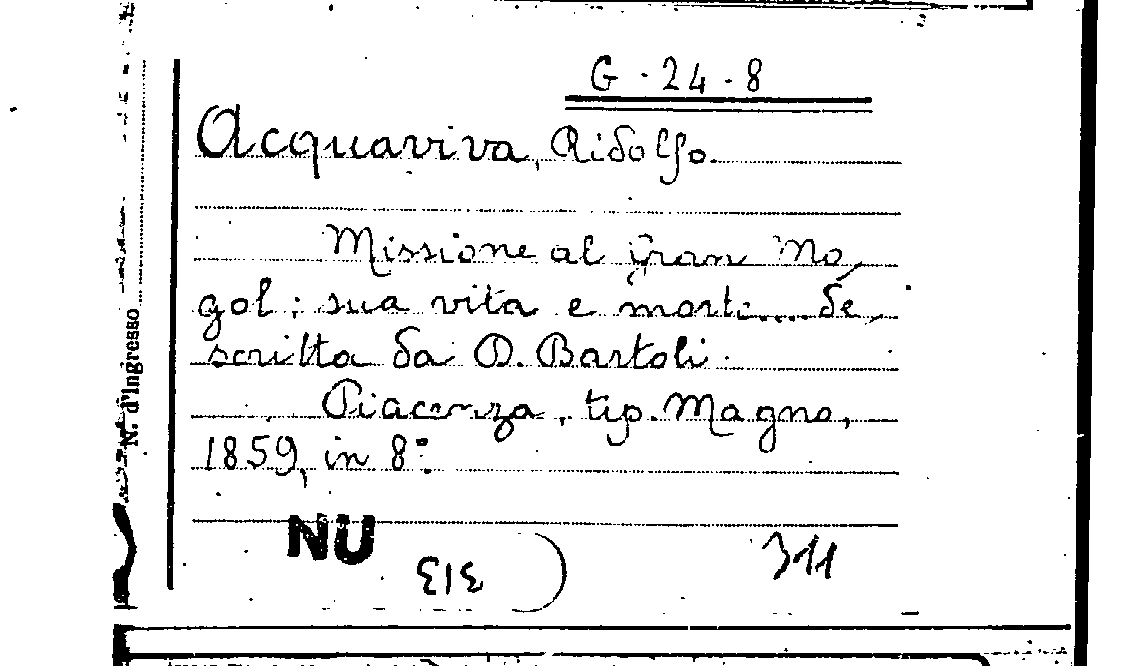 G-24-8
Acquaviva, Ridolfo.
Missione al Gran Mo-
gol: sua vita e morte.... de-
scritta da D. Bartoli.
Piacenza, tip. Magno,
1859, in 8°.
N. d'Ingresso
NU
313
311